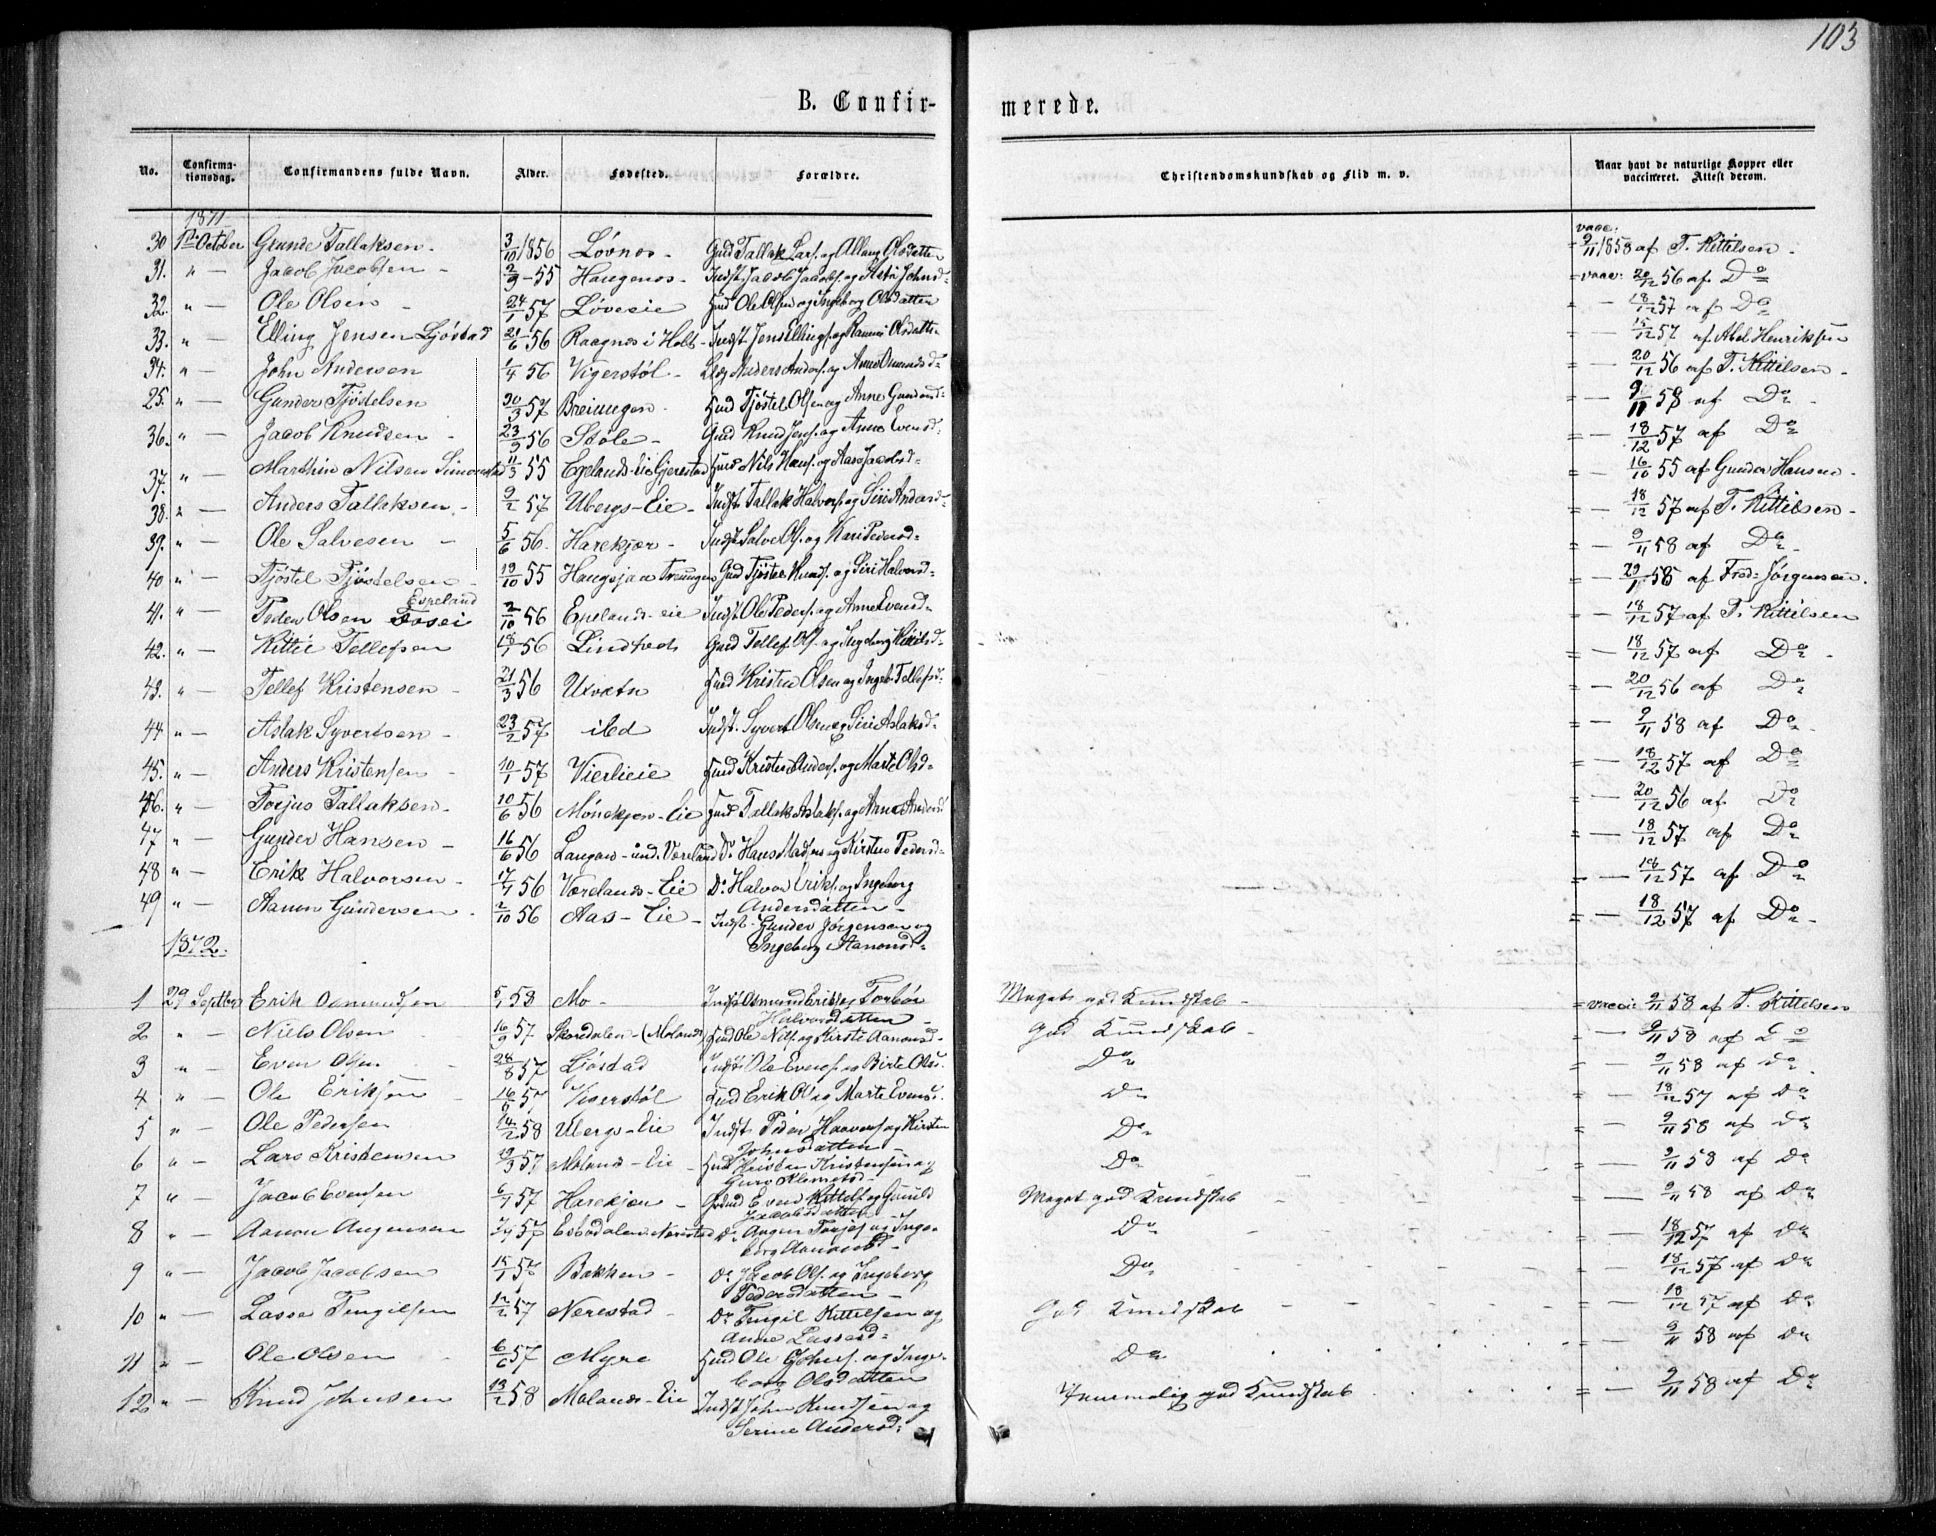 103
B. Confirmerede.
No. Confirmationsdag. Confirmandens fulde Navn. Alder. Fødested. Forældre. Christendomskundskab og Flid m. v. Naar havt de naturlige Kopper eller vaccineret. Attest derom.
1871
30 1ste October Gunde Tallaksen - 3/10 1856 Løvnos - Gmd Tallak Lars. og Olsdatten vacc: 9/11 1858 af T. Kittelsen -
31. " - Jacob Jacobsen - 2/9 - 55 Haugenos - Indst. Jacob Jacobs. og Johnsd - = vacc: 20/12 56 af Do
32. " - Ole Olsen - 24/1 57 Løveeie - Gmd Ole Olsen og Ingeborg Olsdatten - 18/12 57 af Do
33. " - Elling Jensen Ljøstad 21/6 56 i Holt - Indst Jens Ellings. og Olsdatte - 15/12 57 af Abel Henriksen
34. " - John Andersen 1/4 56 Vigerstøl - Anders Anders. og Anne = - 20/12 56 af T. Kittelsen -
25. " - Gunder Tjøstelsen 30/3 57 Breiungen - Gmd Tjøstel Olsen og Anne = - 9/11 58 af Do -
36. " - Jacob Knudsen - 23/9 56 Støle - Gmd Knud Jens. og Anne Evensd = - 18/12 57 af Do
37. " - Marthin Nilsen Simonstad 11/3 55 Espelands-Eie Gjerestad Gmd Nils Hans. og Aase Jacobsd - = - 16/10 55 af Gunder Hansen -
38. " - Anders Tallaksen - 9/2 57 Ubergs-Eie - Indst. Tallak Halvors. og Siri Andersd - = - 18/12 57 af T. Kittelsen -
39. " - Ole Salvesen - 5/6 56. Harekjær - Indst Salve Ols. og Kari Pedersd - = - 9/11 58 af Do -
40 " - Tjøstel Tjøstelsen - 19/10 55 Treungen Gmd Tjøstel Knuds. og Siri Halvorsd - = - 58 af Fred: Jørgensen.
41. " - Peder Olsen Fosei Espeland 2/10 56 Espelands-eie Indst Ole Peders. og Anne Evensd - = - 18/12 57 af T. Kittelsen
42. " - Kittil Tellefsen 18/1 56 Lindtveit Gmd Tellef Ols. og Ingeborg Kittilsd - = - 18/12 57 af Do -
43. " - Tellef Kristensen - 21/3 56 Uxvatn Gmd Kristen Olsen og Ingeb. Tellefsd - = - 20/12 56 af Do
44 " - Aslak Syvertsen - 23/2 57 ibd Indst. Syvert Olsen og Siri Aslaksd - = - 9/11 58 af Do -
45. " - Anders Kristensen - 10/1 57 Vierlieie Gmd Kristen Anders. og Marte Olsd - - 18/12 57 af Do
46. " - Torjus Tallaksen - 10/6 56 Mønekjær-Eie Gmd Tallak Aslaks. og Anne Andersd - 20/12 56 af Do
47 " - Gunder Hansen - 16/6 56 Langaas-und. Væreland Do Hans Madsen og Kirsten Pedersd = - 18/12 57 af Do
48 " - Erik Halvorsen - 17/7 56 Værelands-Eie Do Halvor Eriks. og Ingeborg Andersdatten - = - 18/12 57 af Do
49 " - Aanon Gundersen - 2/10 56 Aas-Eie - Indst - Gunder Jørgensen og Ingeborg Aanonsd = = - 18/12 57 af Do -
1872.
1 29 Septber Erik Osmundsen 5/1 58 Mo - Indst Osmund Eriks. og Torbør Halvorsdatten - Meget god Kundskab - = vacc: 9/11 58 af T. Kittelsen
2 " - Niels Olsen 16/9 57. Skordalen - (Moland) Gmd Ole Nils. og Kirsti Aanonsd - God Kundskab - - 9/11 58 af Do
3 " - Even Olsen 28/8 57 Ljøstad Indst Ole Evens. og Birte Olsd. Do - 9/11 58 af do -
4 " - Ole Eriksen 57 Vigerstøl Gmd Erik Ols. og Marte Evensd. Do = - 18/12 57 af Do
5 " - Ole Pedersen 14/2 58 Ubergs-Eie Indst Peder Haavors. og Kirsten Johnsdatten - Do = - 9/11 58 af do
6 " - Lars Kristensen 19/3 57 Molands-Eie - Gmd Kristen Kristensen og Guro Klemetsd - Do = - 9/11 58 af Do
7 " - Jacob Evensen 6/7 57 Harekjær - Gmd Even Kittels. og Gunild Jacobsdatten Meget god Kundskab - - 9/11 58 af Do
8 " - Aanon Augensen 57 Esbodalen-Nerestad Do Augen Torjes. og Ingeborg Aanonsd - Do - - 18/12 57 af Do
9 " - Jacob Jacobsen 15/1 57 Bakken - Do Jacob Ols. og Ingeborg Pedersdatten - Do - - 18/12 57 af Do
10 " - Lasse Tengilsen 12/2 57 Nerestad - Do Tengil Kittelsen og Anne Lassesd = God Kundskab - - 18/12 57 af Do
11 " - Ole Olsen - 6/6 57 Myre Gmd Ole Johns. og Ingeborg Olsdatten Do = - 9/11 58 af Do
12 " - Knud Johnsen 13/2 58 Molands-Eie Indst John Knudsen og Serine Andersd: Temmelig god Kundskab = - 9/11 58 af Do